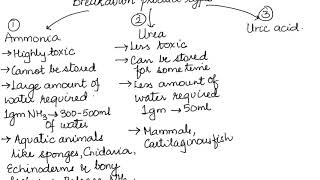 Breakdown product type
① Ammonia
→ Highly toxic
→ Cannot be stored
→ Large amount of
water required
1gm NH3 → 300-500ml
of water
→ Aquatic animals
like sponges, Cnidaria,
Echinoderms & bony
② Urea
→ Less toxic
→ Can be stored
for some time
→ Less amount of
water required
1gm → 50ml
→ Mammals,
Cartilaginous fish
③ Uric acid